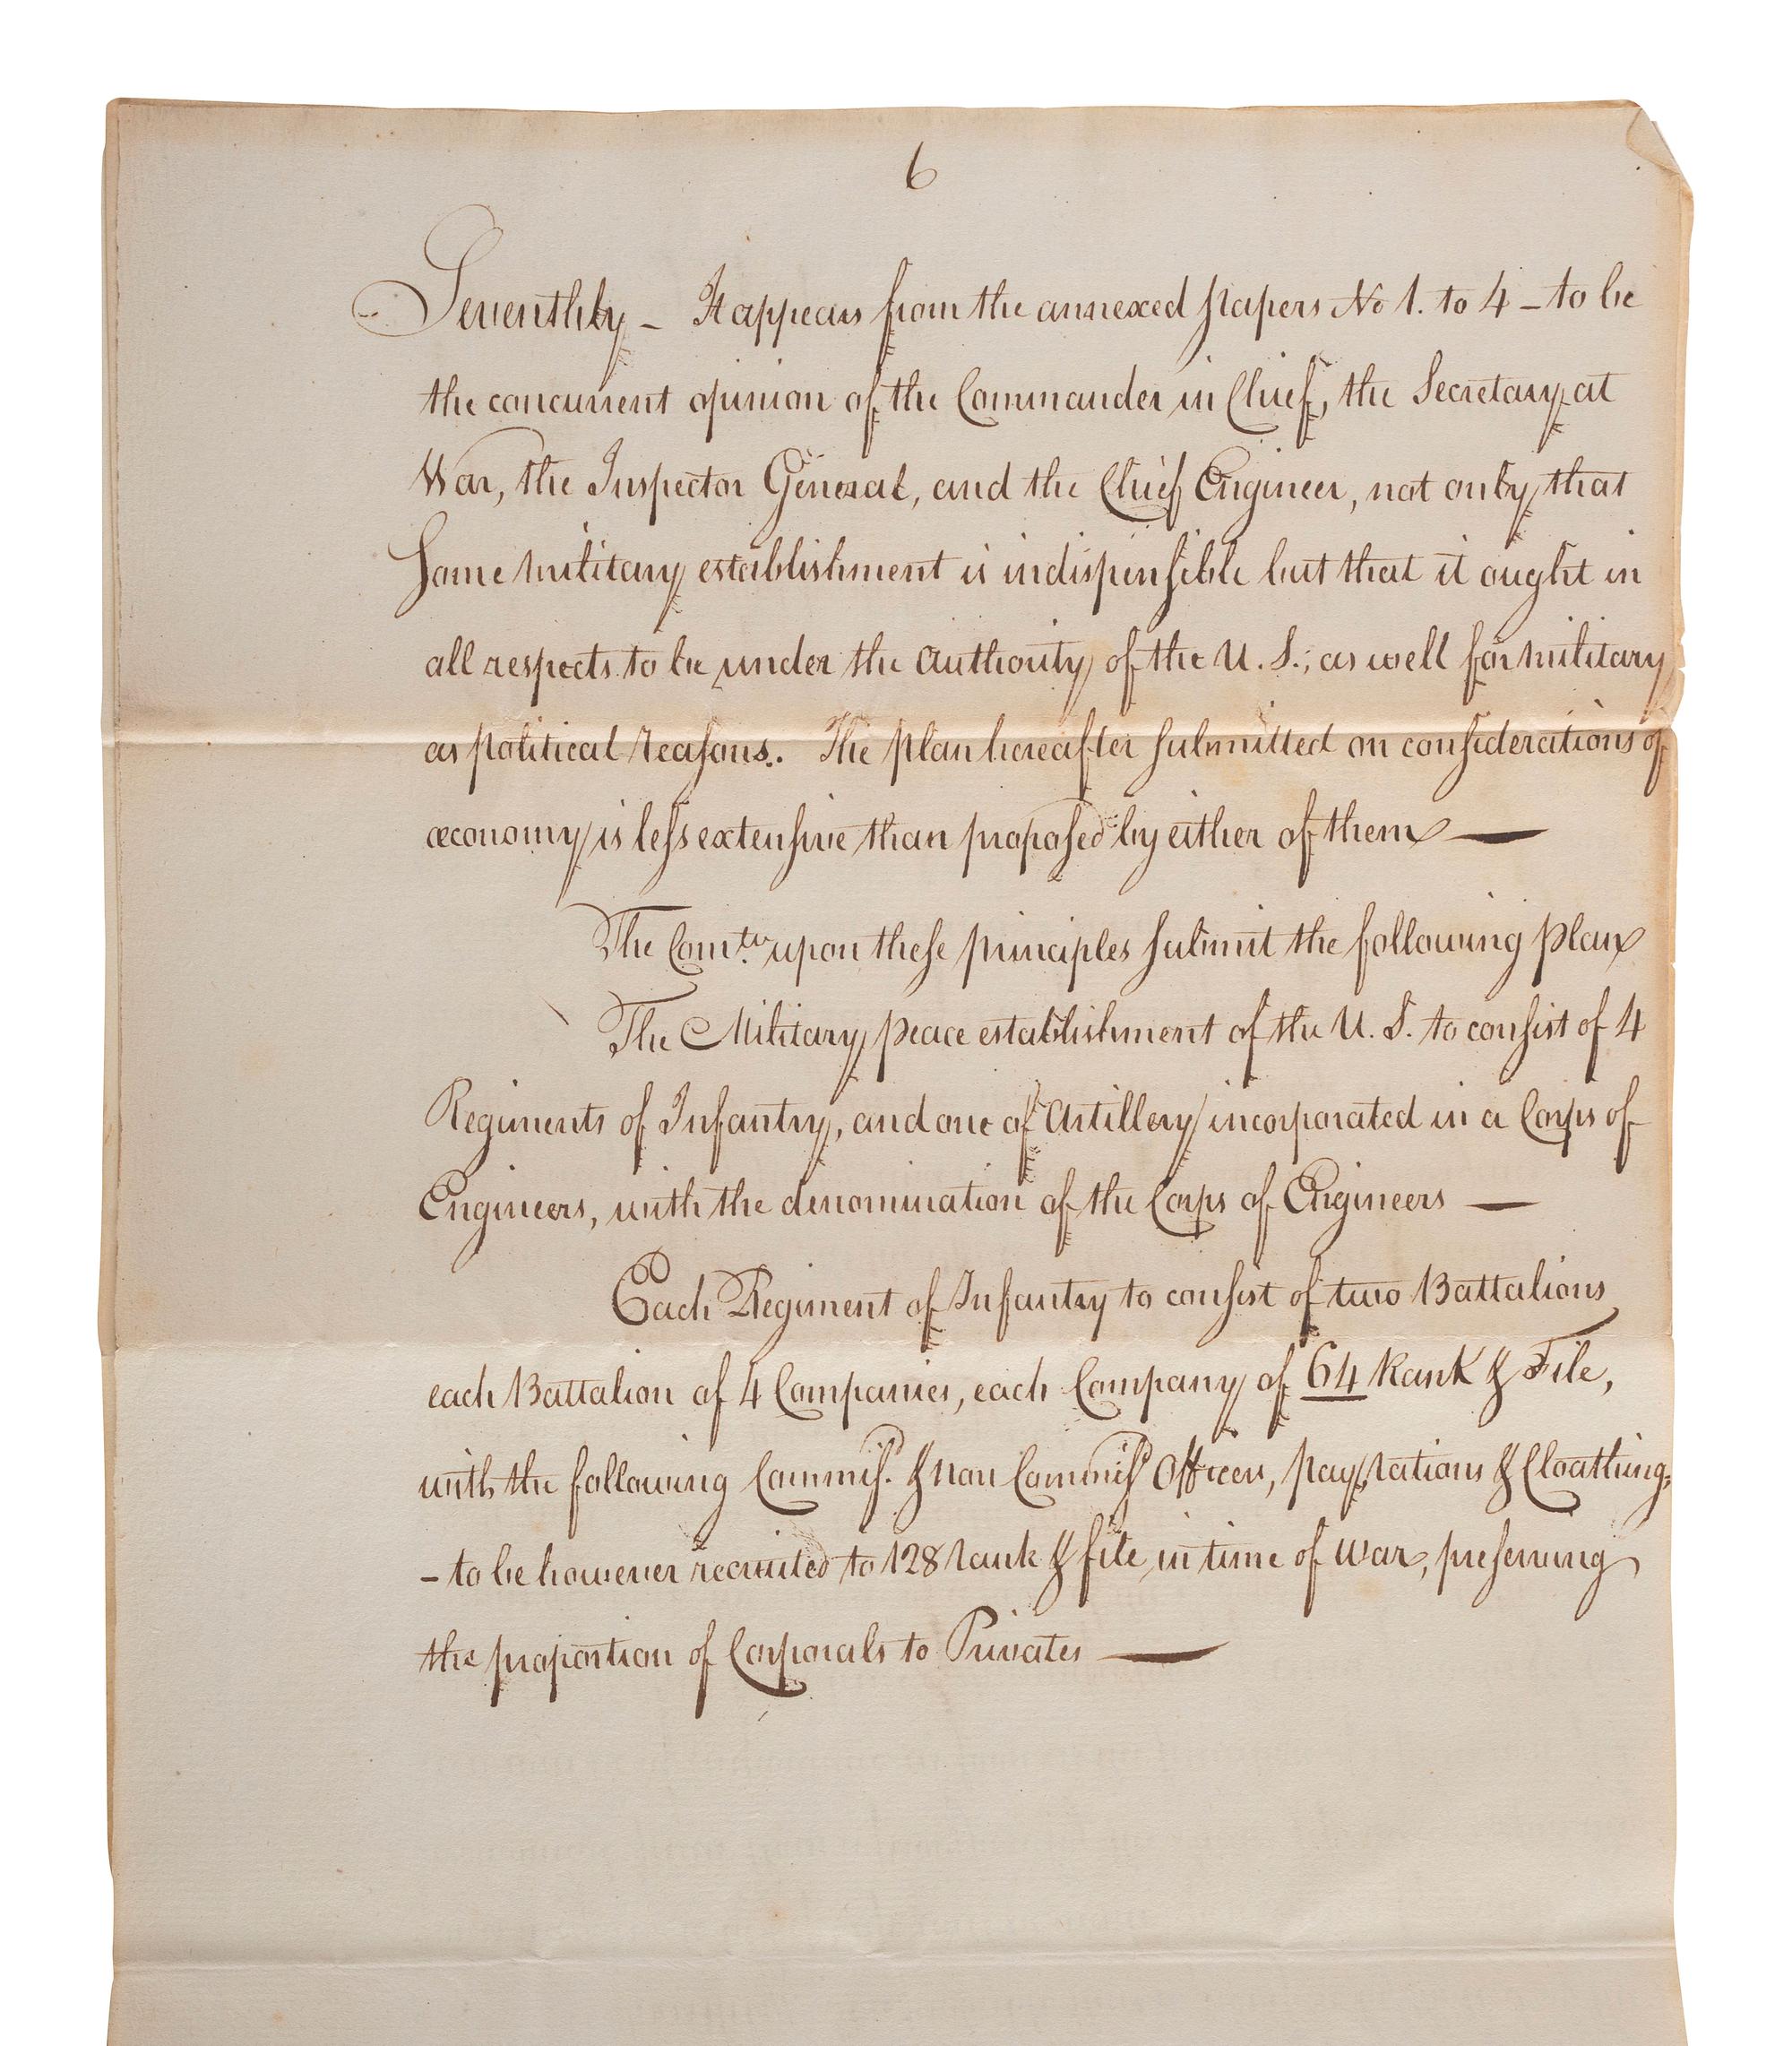 6
Seventhly – It appears from the annexed papers No 1. to 4 – to be
the concurrent opinion of the Commander in Chief, the Secretary at
War, the Inspector General, and the Chief Engineer, not only that
some military establishment is indispensible but that it ought in
all respects to be under the authority of the U. S.; as well for military
as political reasons. The plan hereafter submitted on considerations of
œconomy is less extensive than proposed by either of them —
The Comte. upon these principles submit the following plan
The Military peace establishment of the U. S. to consist of 4
Regiments of Infantry, and one of Artillery incorporated in a Corps of
Engineers, with the denomination of the Corps of Engineers —
Each Regiment of Infantry to consist of two Battalions
each Battalion of 4 Companies, each Company of 64 Rank & File,
with the following Commisd. & non Commisd Officers, pay, rations & Cloathing,
– to be however recruited to 128 rank & file, in time of war, preserving
the proportion of Corporals to Privates —